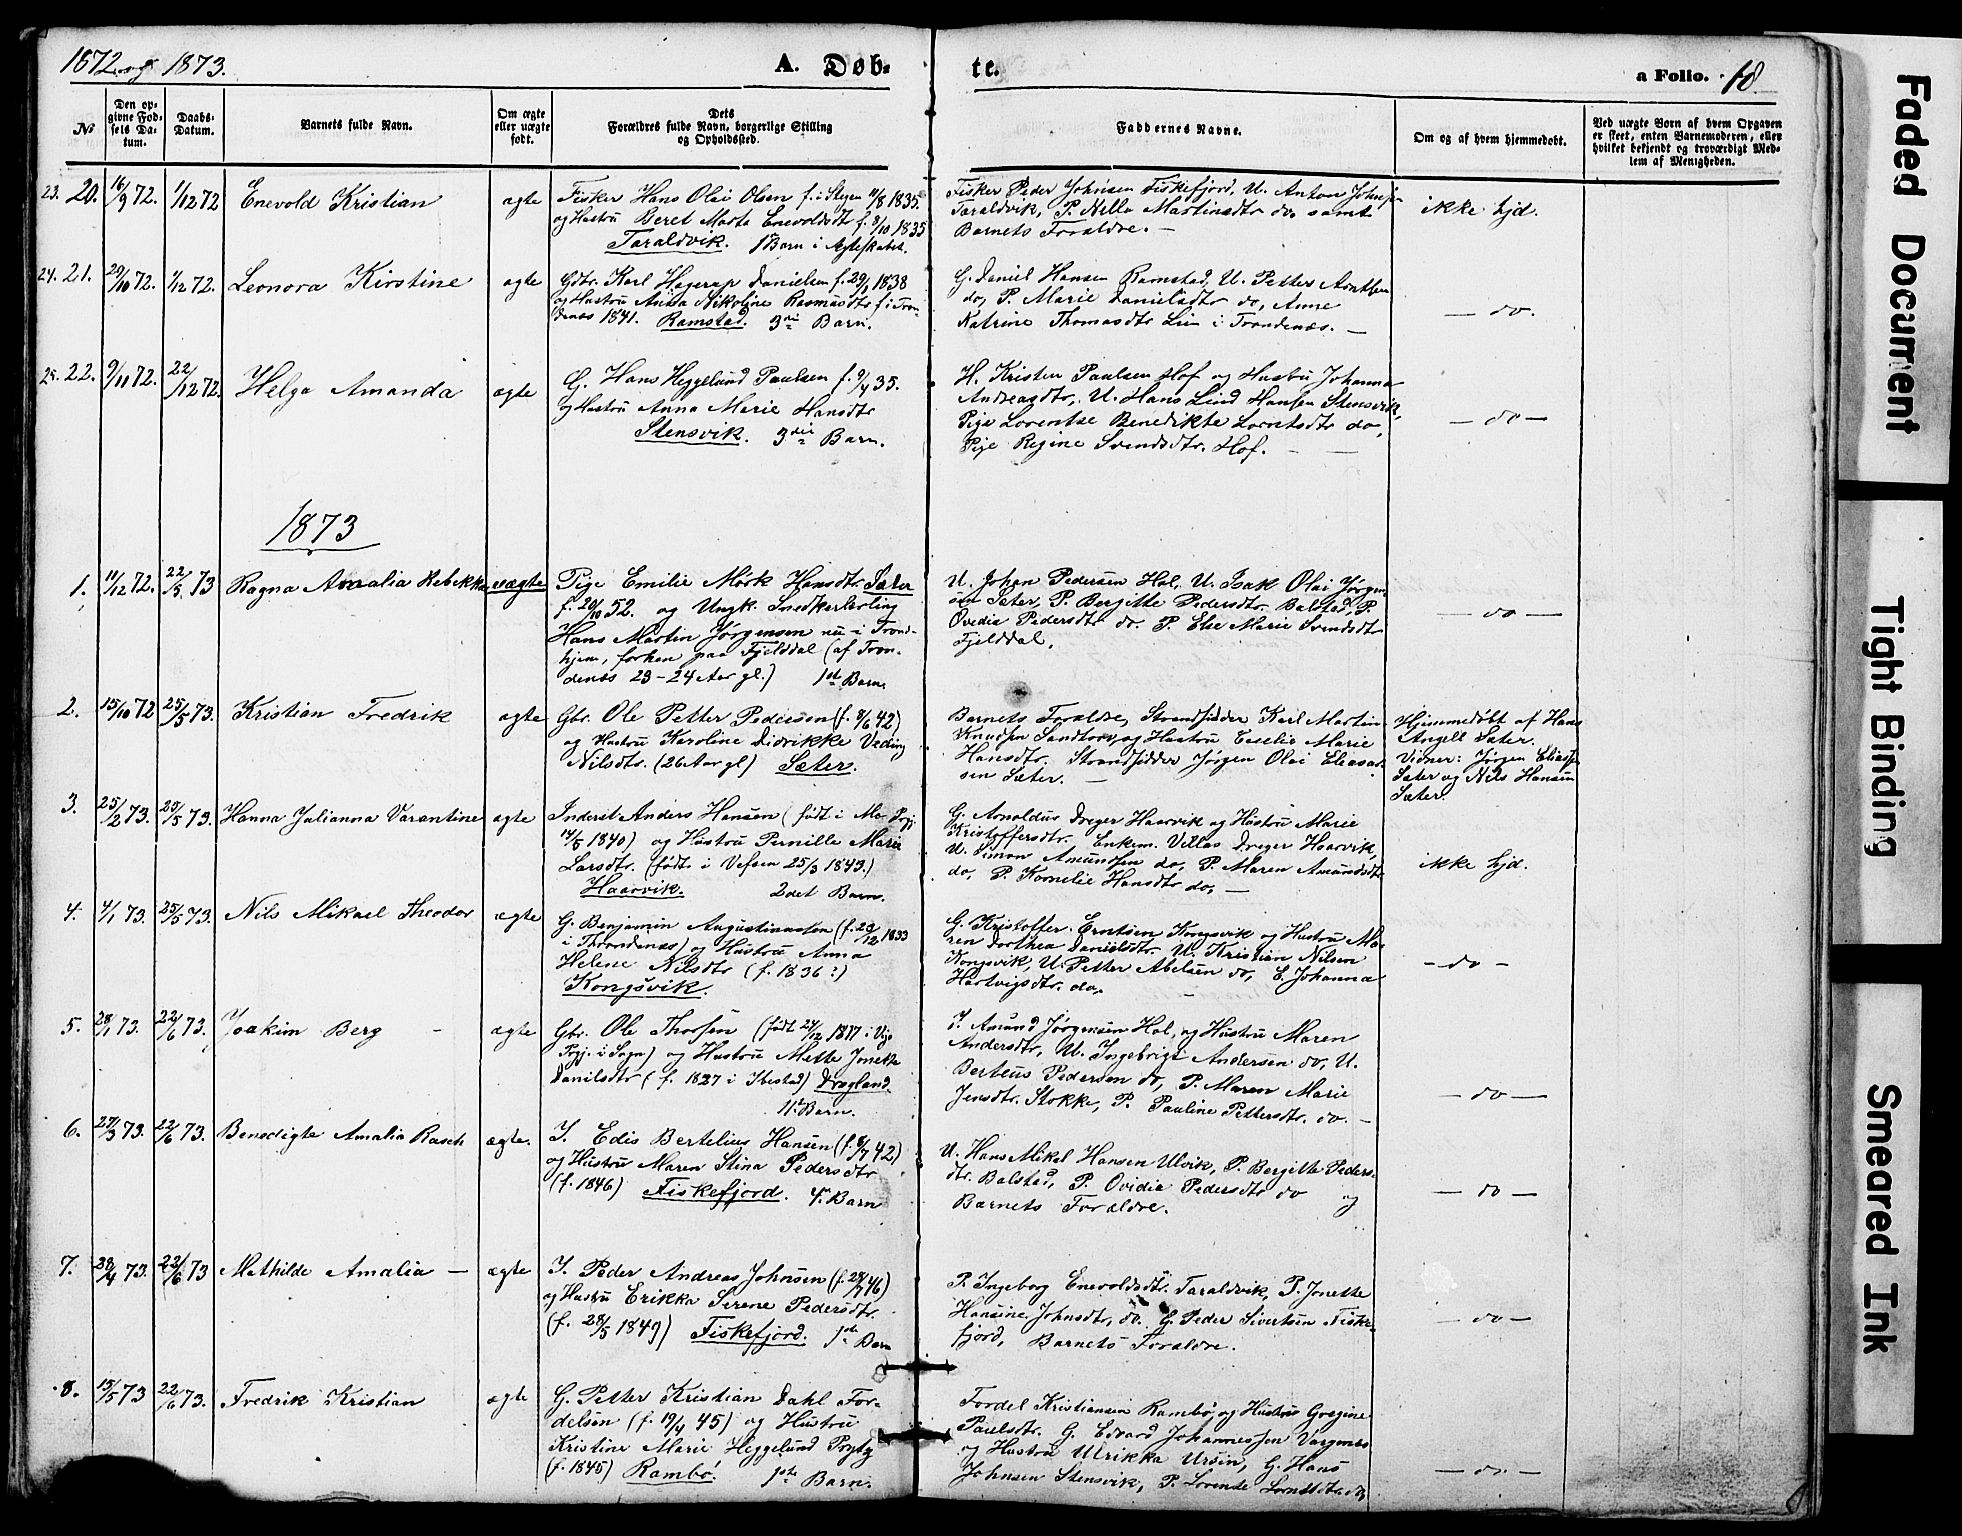 1872 og 1873.
A. Døb-
te.
a Folio. 18.
No
Den op-
givne Fød-
sels Da-
tum.
Daabs-
Datum.
Barnets fulde Navn.
Om ægte
eller uægte
født.
Dets
Forældres fulde Navn, borgerlige Stilling
og Opholdssted.
Faddernes Navne.
Om og af hvem hjemmedøbt.
Ved uægte Børn af hvem Opgaven
er skeet, enten Barnemoderen, eller
hvilket bekjendt og troværdigt Med-
lem af Menigheden.
23. 20. 16/9 72. 1/12 72 Enevold Kristian ægte
Fisker Hans Olai Olsen f. i Stegen 11/8 1835.
og Hustru Beret Marta Enevoldsdt f. 8/10 1835
Taraldvik. 1 Barn i Ægteskabet.
Fisker Peder Johnsen Fiskefjord, U. Anton Johnsen
Taraldvik, P. Nella Martinsdtr do, samt
Barnets Forældre. —
ikke hjd.
24. 21. 29/10 72. 1/12 72. Leonora Kirstine ægte
Gbr. Karl Hagerup Danielsen f. 29/1 1838
og Hustru Anna Nikoline Rasmusdtr f. i Tron-
denæs 1841. Ramstad. 3die Barn.
G. Daniel Hansen Ramstad, U. Petter Arntsen
do, P. Marie Danielsdtr do, Anne
Katrine Thomasdtr Lun i Trondenæs. —
— do.
25. 22. 9/11 72. 22/12 72. Helga Amanda ægte
G. Hans Heggelund Paulsen f. 9/4 35.
og Hustru Anna Marie Hansdtr
Stensvik. 3die Barn.
H. Kristen Paulsen Hof og Hustru Johanna
Andreasdtr, U. Hans Lind Hansen Stensvik,
Pige Lorentse Benedikte Lorntsdtr do,
Pige Regine Svendsdtr. Hof. — —
— do —
1873
1. 11/12 72. 22/5 73 Ragna Amalia Rebekka uægte
Pige Emilie Mørk Hansdtr. Sæter
f. 20/10 52. og Ungk. Snedkerlærling
Hans Martin Jørgensen nu i Trond-
hjem, forhen paa Fjelddal (af Tron-
denæs 23-24 Aar gl.) 1st Barn.
U. Johan Pedersen Hol, U. Isak Olai Jørgen-
sen Sæter, P. Bergitte Pedersdtr. Balstad, P.
Ovedia Pedersdtr do. P. Else Marie Svendsdtr
Fjelddal.
— do —
2. 15/10 72 25/5 73. Kristian Fredrik ægte
Gbr. Ole Petter Pedersen (f. 8/6 42)
og Hustru Karoline Didrikke Veding
Nilsdtr. (26 Aar gl) Sæter.
Barnets Forældre, Strandsidder Karl Martin
Knudsen Sandtorv, og Hustru Emelie Marie
Hansdtr. Strandsidder Jørgen Olai Eleasar-
sen Sæter. —
Hjemmedøbt af Hans
Angell Sæter.
Vidner: Jørgen Eliassn
Sæter og Nils Hansen
Sæter.
3. 25/2 73. 25/5 73. Hanna Julianna Varantine ægte
Inderst Anders Hansen (født i Mo Prgj
14/5 1840) og Hustru Pernille Marie
Larsdtr. (født i Vefsen 25/3 1843.)
Haarvik. 2det Barn.
G. Arnoldus Dreyer Haarvik og Hustru Marie
Kristoffersdtr. Enkem. Vellas Dreyer Haarvik,
U. Simon Amundsen do, P. Maren Amundsdtr
do, P. Kornelie Hansdtr do, —
ikke hjd.
4. 4/1 73. 25/5 73. Nils Mikael Theodor ægte
G. Benjamin Augustinussen (f. 29/12 1833
i Throndenæs) og Hustru Anna
Helene Nilsdtr (f. 1836?)
Kongsvik.
G. Kristoffer Erntsen Kongsvik og Hustru Ma-
ren Dorthea Danielsdtr. U. Kristian Nilsen
Kongsvik, U. Petter Abelsen do, E. Johanna
Hartvigsdtr. do. —
— do —
5. 28/1 73. 22/6 73. Joakim Berg — ægte
Gbr. Ole Thorsen (født 24/12 1817 i Vigs
Prgj. i Sogn) og Hustru Mette Jonetta
Danilsdtr (f. 1827 i Ibestad) Dragland.
11t Barn.
I. Amund Jørgensen Hol, og Hustru Maren
Andersdtr, U. Ingebrigt Andersen do, U.
Berteus Pedersen do, P. Maren Marie
Jensdtr. Stokke, P. Pauline Pettersdtr. do. —
— do —
6. 27/3 73. 22/6 73. Benedigte Amalia Rasch ægte.
I. Edis Bertelius Hansen (f. 8/7 42)
og Hustru Maren Stina Pedersdtr
(f. 1846) Fiskefjord. 4de Barn
U. Hans Mikal Hansen Ulvik, P. Bergitte Peders-
dtr. Balstad, P. Ovidia Pedersdtr do og
Barnets Forældre.
— do —
7. 28/4 73. 22/6 73 Mathilde Amalia — ægte
I. Peder Andreas Johnsen (f. 28/7 46)
og Hustru Erikka Serene Pedersdtr.
(f. 28/5 1849) Fiskefjord. 1ste Barn
P. Ingeborg Enevoldsdt. Taraldvik, P. Jonette
Hansine Johnsdtr, do. G. Peder Sivertsen Fiske-
fjord, Barnets Forældre.
— do —
8. 15/5 73 22/6 73. Fredrik Kristian ægte
G. Petter Kristian Dahl For-
delsen (f. 19/4 45) og Hustru
Kristine Marie Heggelund Prytz
(f. 1845) Rambø. 1ste Barn.
Fordel Kristiansen Rambø, og Hustru Gregine
Paulsdtr. G. Edvard Johannessen Vargenes
og Hustru Ulrikka Ursin, G. Hans
Johnsen Stensvik, P. Lorentse Lorntsdtr. do,
— do —
Faded Document
Tight Binding
Smeared Ink